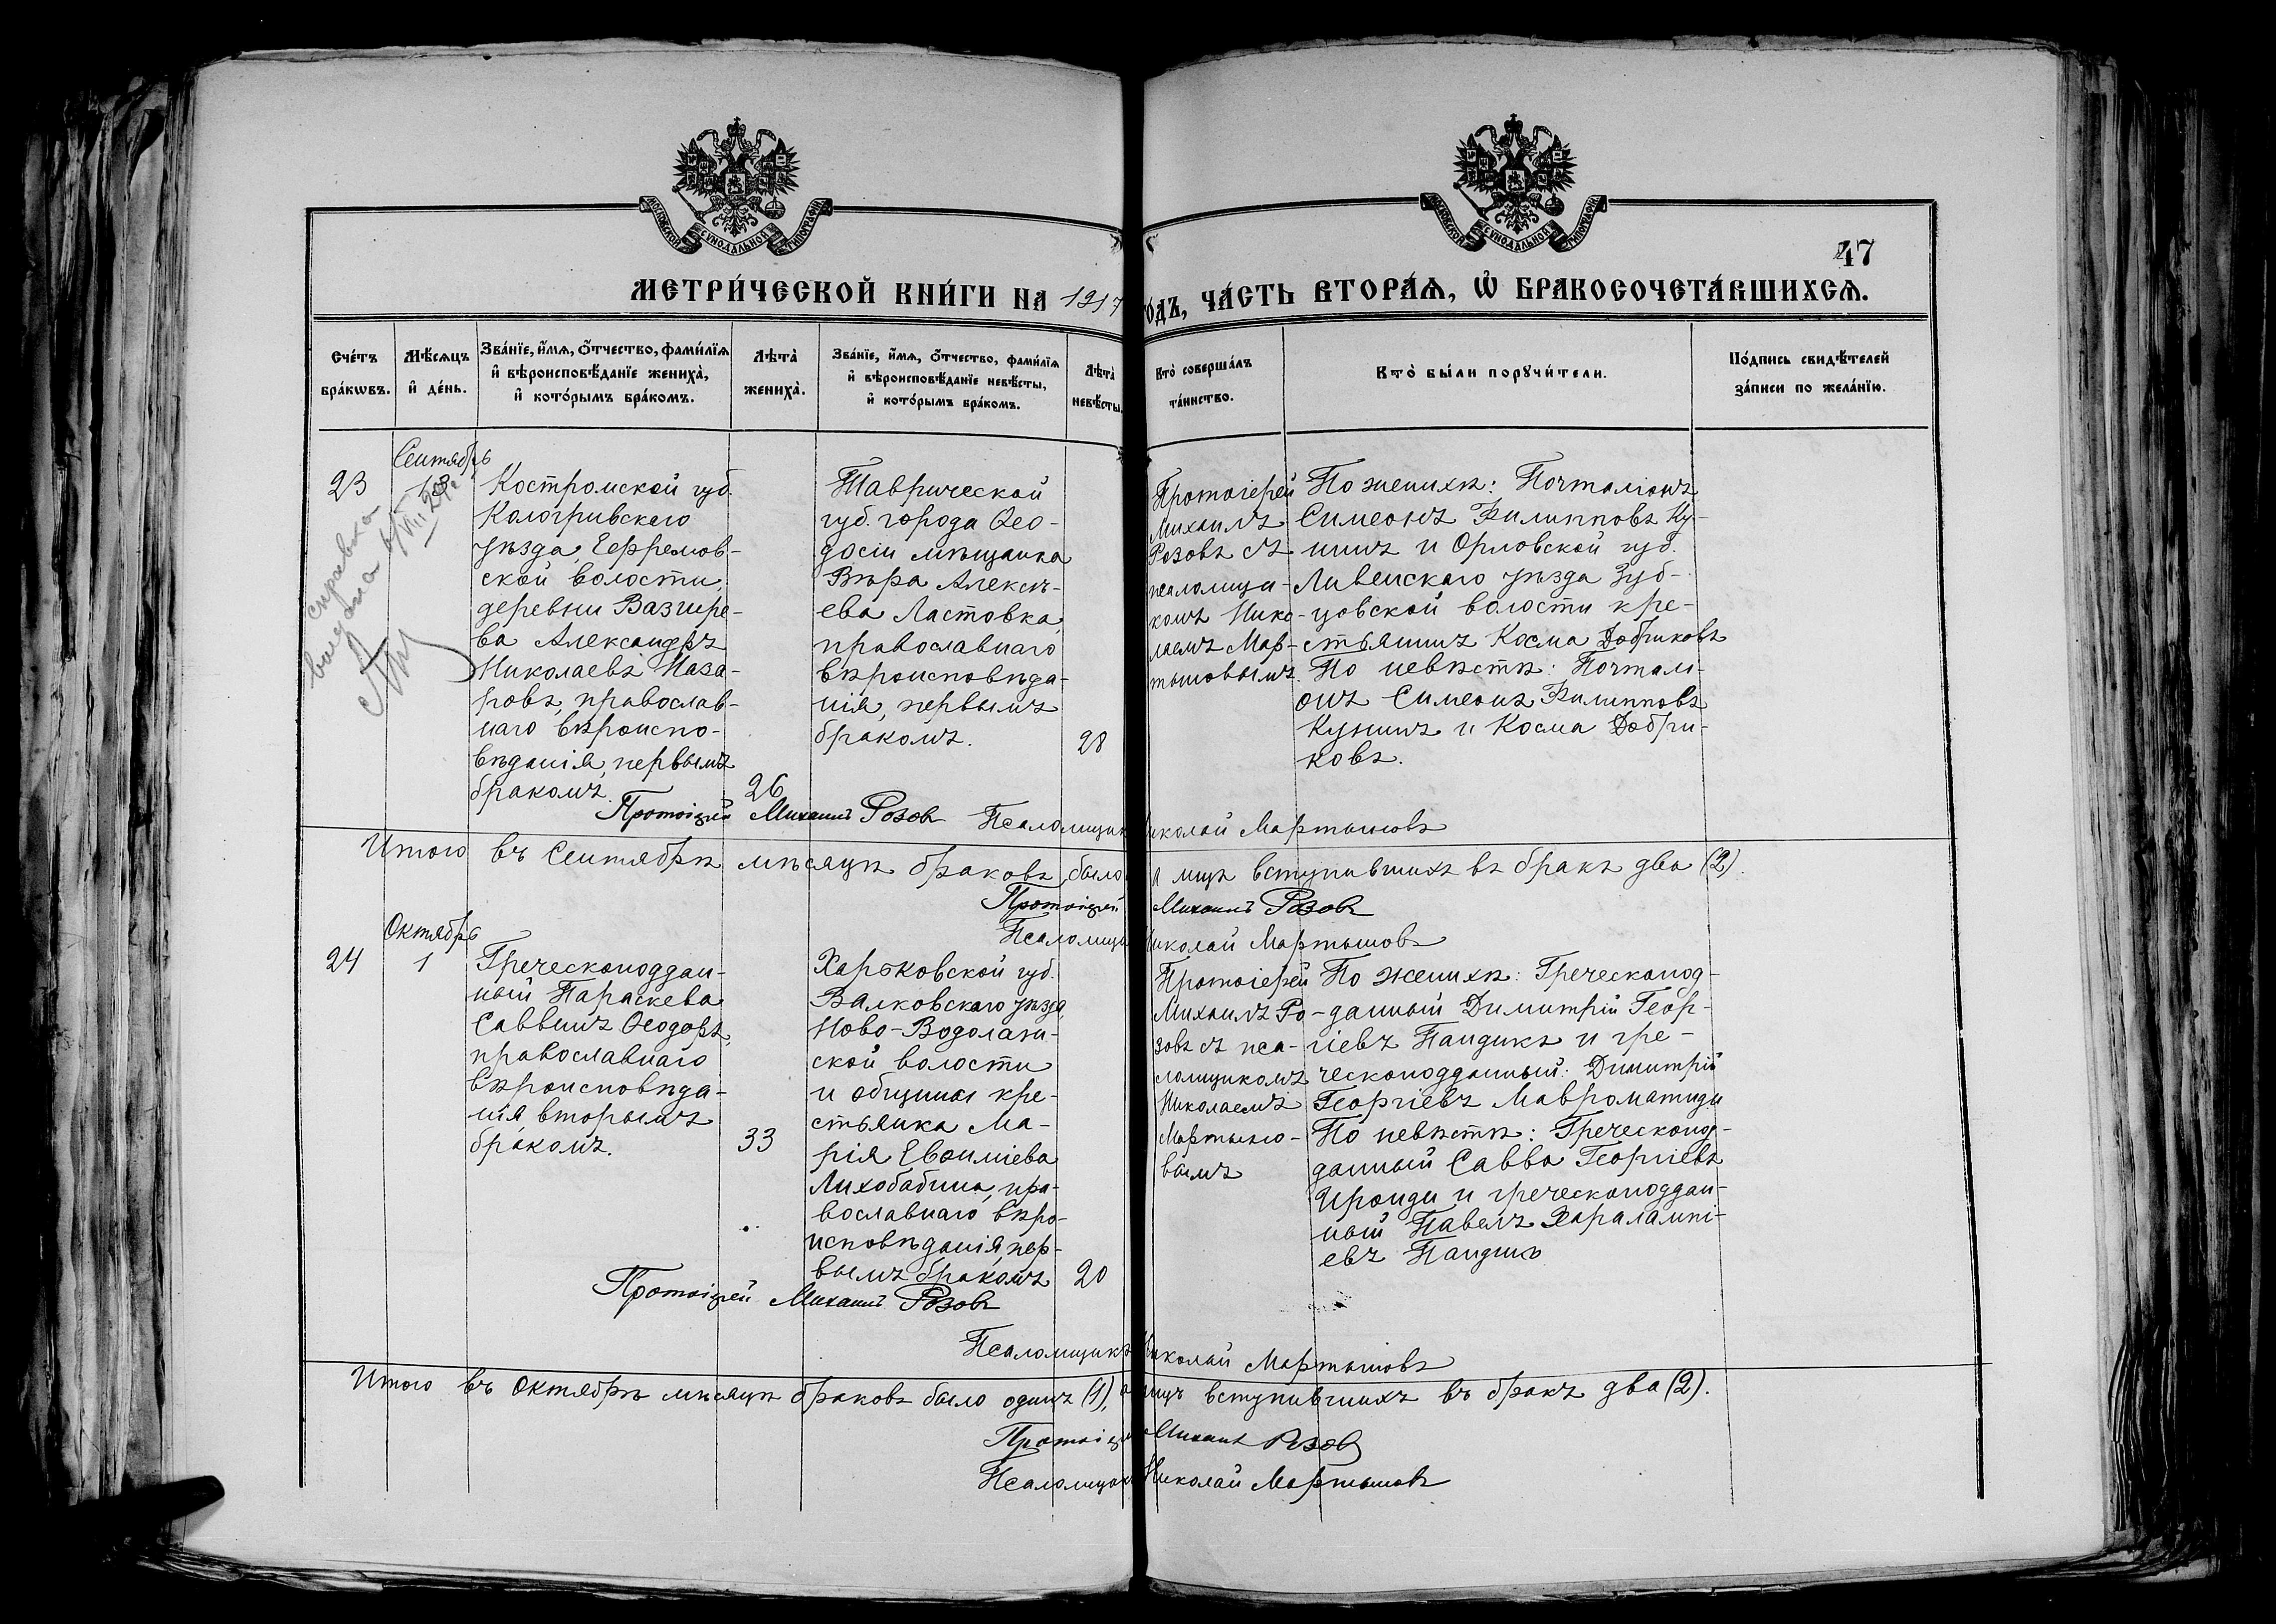 МОСКОВСКОЙ СѴНОДАЛЬНОЙ ТИПОГРАФІИ
МОСКОВСКОЙ СѴНОДАЛЬНОЙ ТИПОГРАФІИ
47
МЕТРИ́ЧЕСКОЙ КНИ́ГИ НА 1917 ГОДЪ, ЧА́СТЬ ВТОРА́Ѧ, Ѡ҆ БРАКОСОЧЕТА́ВШИХСѦ.
Сче́тъ бра́кѡвъ.
Мѣ́сѧцъ и҆ де́нь.
Зва́нїе, и҆́мѧ, ѻ҆́тчество, фами́лїѧ и҆ вѣроисповѣ́данїе жениха̀, и҆ кото́рымъ бра́комъ.
Лѣта̀ жениха̀.
Зва́нїе, и҆́мѧ, ѻ҆́тчество, фами́лїѧ и҆ вѣроисповѣ́данїе невѣ́сты, и҆ кото́рымъ бра́комъ.
Лѣта̀ невѣ́сты.
Кто̀ соверша́лъ та́инство.
Кто̀ бы́ли порꙋчи́тели.
По́дпись свидѣ́телей за́писи по жела́нїю.
Сентябрь
23
Костромской губ.
Кологривскаго
уѣзда, Ефремов-
ской волости,
деревни Вазгире-
ва Александръ
Николаевъ Наза-
ровъ, православ-
наго вѣроиспо-
вѣданія, первымъ
бракомъ.
26
Таврической
губ. города Ѳео-
досіи мѣщанка
Вѣра Алексѣ-
ева Ластовка,
православнаго
вѣроисповѣда-
нія, первымъ
бракомъ.
28
Протоіерей
Михаилъ
Розовъ съ
псаломщи-
комъ Нико-
лаемъ Мар-
тыновымъ.
По женихѣ: Почталіонъ
Симеонъ Филипповъ Ку-
нинъ и Орловской губ.
Ливенскаго уѣзда Зуб-
цовской волости кре-
стьянинъ Косма Добриковъ
По невѣстѣ: Почталі-
онъ Симеонъ Филипповъ
Кунинъ и Косма Добри-
ковъ.
справка
выдана
Протоіерей Михаилъ Розовъ Псаломщикъ Николай Мартыновъ
Итого въ Сентябрѣ мѣсяцѣ браковъ было лицъ вступившихъ въ бракъ два (2).
Протоіерей Михаилъ Розовъ
Псаломщикъ Николай Мартыновъ
Октябрь
24
1
Греческоподдан-
ный Параскева
Саввинъ Ѳеодоръ,
православнаго
вѣроисповѣда-
нія, вторымъ
бракомъ.
33
Харьковской губ.
Валковскаго уѣзда,
Ново-Водолаж-
ской волости
и общины кре-
стьянка Ма-
рія Евѳиміева
Лихобабина, пра-
вославнаго вѣро-
исповѣданія, пер-
вымъ бракомъ
20
Протоіерей
Михаилъ Ро-
зовъ съ пса-
ломщикомъ
Николаемъ
Мартыно-
вымъ
По женихѣ: Греческопод-
данный Димитрій Геор-
гіевъ Пандикъ и гре-
ческоподданный: Димитрій
Георгіевъ Мавроматиди
По невѣстѣ: Греческопод-
данный Савва Георгіевъ
Ироиди и греческоподдан-
ный Павелъ Харалампі-
евъ Пандикъ
Протоіерей Михаилъ Розовъ
Псаломщикъ Николай Мартыновъ
Итого въ Октябрѣ мѣсяцѣ браковъ было одинъ (1), а лицъ вступившихъ въ бракъ два (2).
Протоіерей Михаилъ Розовъ
Псаломщикъ Николай Мартыновъ